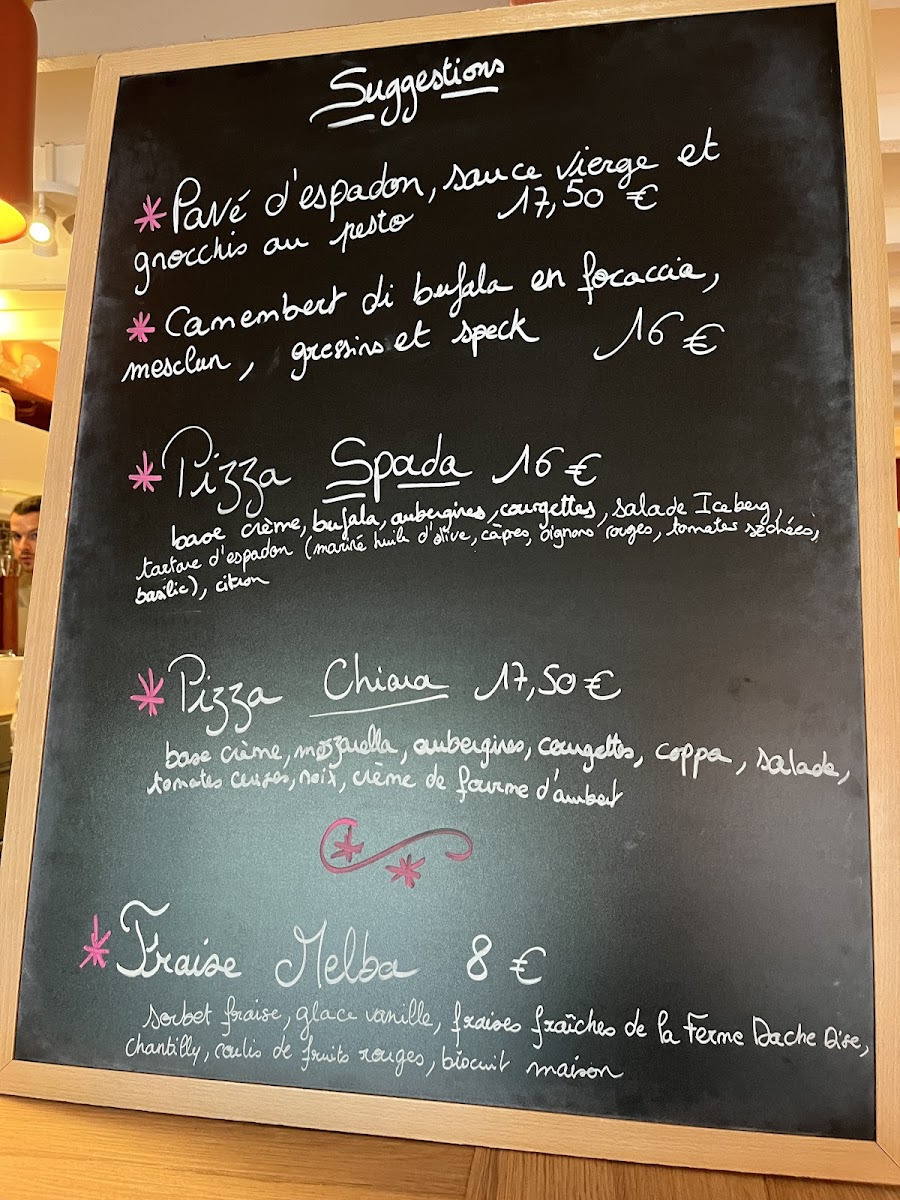 Suggestions
* Pavé d'espadon, sauce vierge et
gnocchis au pesto 17,50 €
* Camembert di bufala en focaccia,
mesclun, gressins et speck 16 €
* Pizza Spada 16 €
base crème, bufala, aubergines, courgettes, salade Iceberg,
tartare d'espadon (mariné huile d'olive, câpres, oignons rouges, tomates séchées,
basilic), citron
* Pizza Chiara 17,50 €
base crème, mozzarella, aubergines, courgettes, coppa, salade,
tomates cerises, noix, crème de fourme d'ambert
* Fraise Melba 8 €
sorbet fraise, glace vanille, fraises fraîches de la Ferme Dache
chantilly, coulis de fruits rouges, biscuit maison